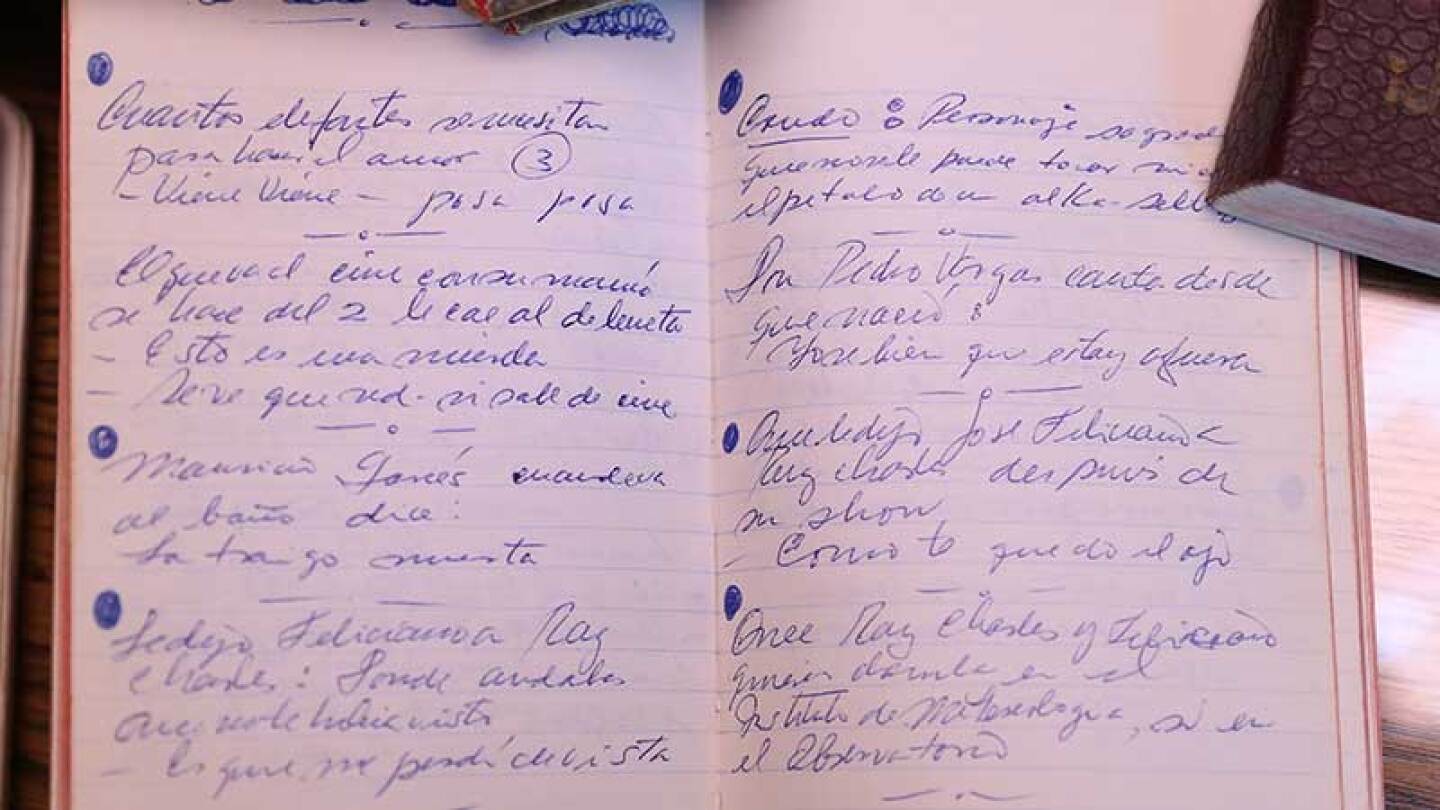 Cuantos defontes se nesitan
para hacer el amor 3
- Viene Viene - pasa pasa
El que va al cine con su mamá
se hase del 2 le cae al de luneta
- Esto es una mierda
- Se ve que ud. si sabe de cine
Mauricio Garcés cuando va
al baño dice:
La traigo muerta
Le dijo Feliciano a Ray
Charles: Donde andabas
que no te habia visto
- Es que me perdí de vista
Crudo: Personaje sagrado
que no se le puede tocar ni con
el petalo de un alka-selt
Don Pedro Vargas canta desde
que nació:
Yo se bien que estoy afuera
Que le dijo Jose Feliciano a
Ray Charles despues de
su show
- Como te quedo el ojo
Que Ray Charles y Feliciano
quieren dar en el
Instituto de Meteorologia, si en
el Observatorio